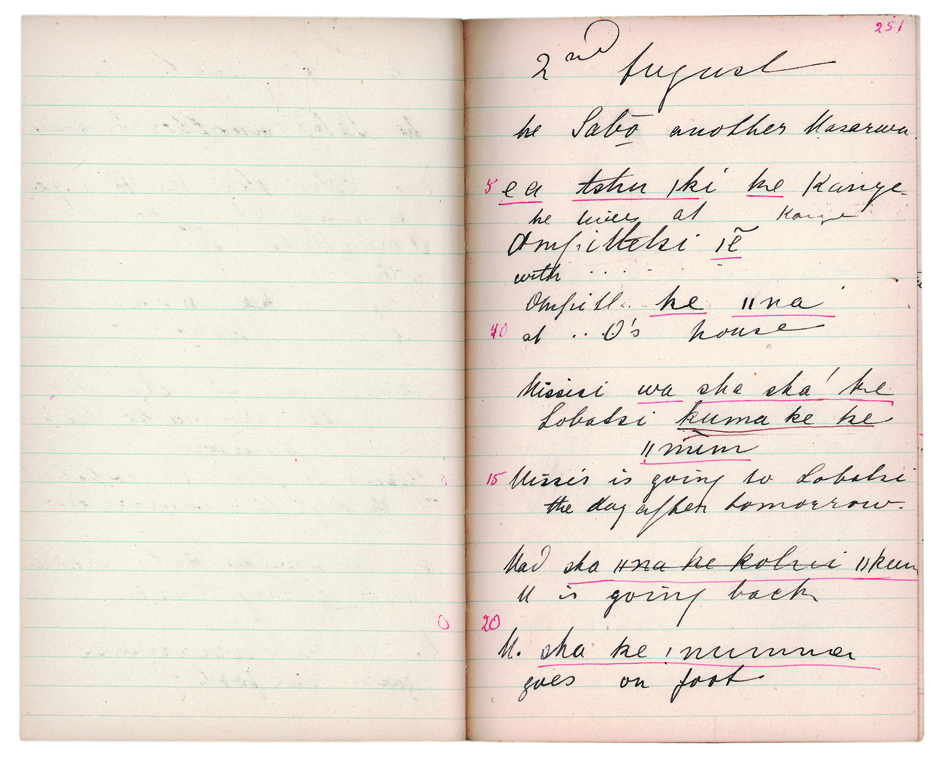 251
2nd August
he Sabō another Masarwa
5 ea tshu |ki ke Kanye
he lives at Kanye
|ē
with . . . . .
ke ǁna
10 at . . O's house
Missisi wa sha sha! ke
Lobatsi kuma ke ke
ǁnīim
15 Missis is going to Lobatsi
the day after tomorrow.
sha ǁna ke ǁkum
M is going back
0 20
M. sha ke !numma
goes on foot